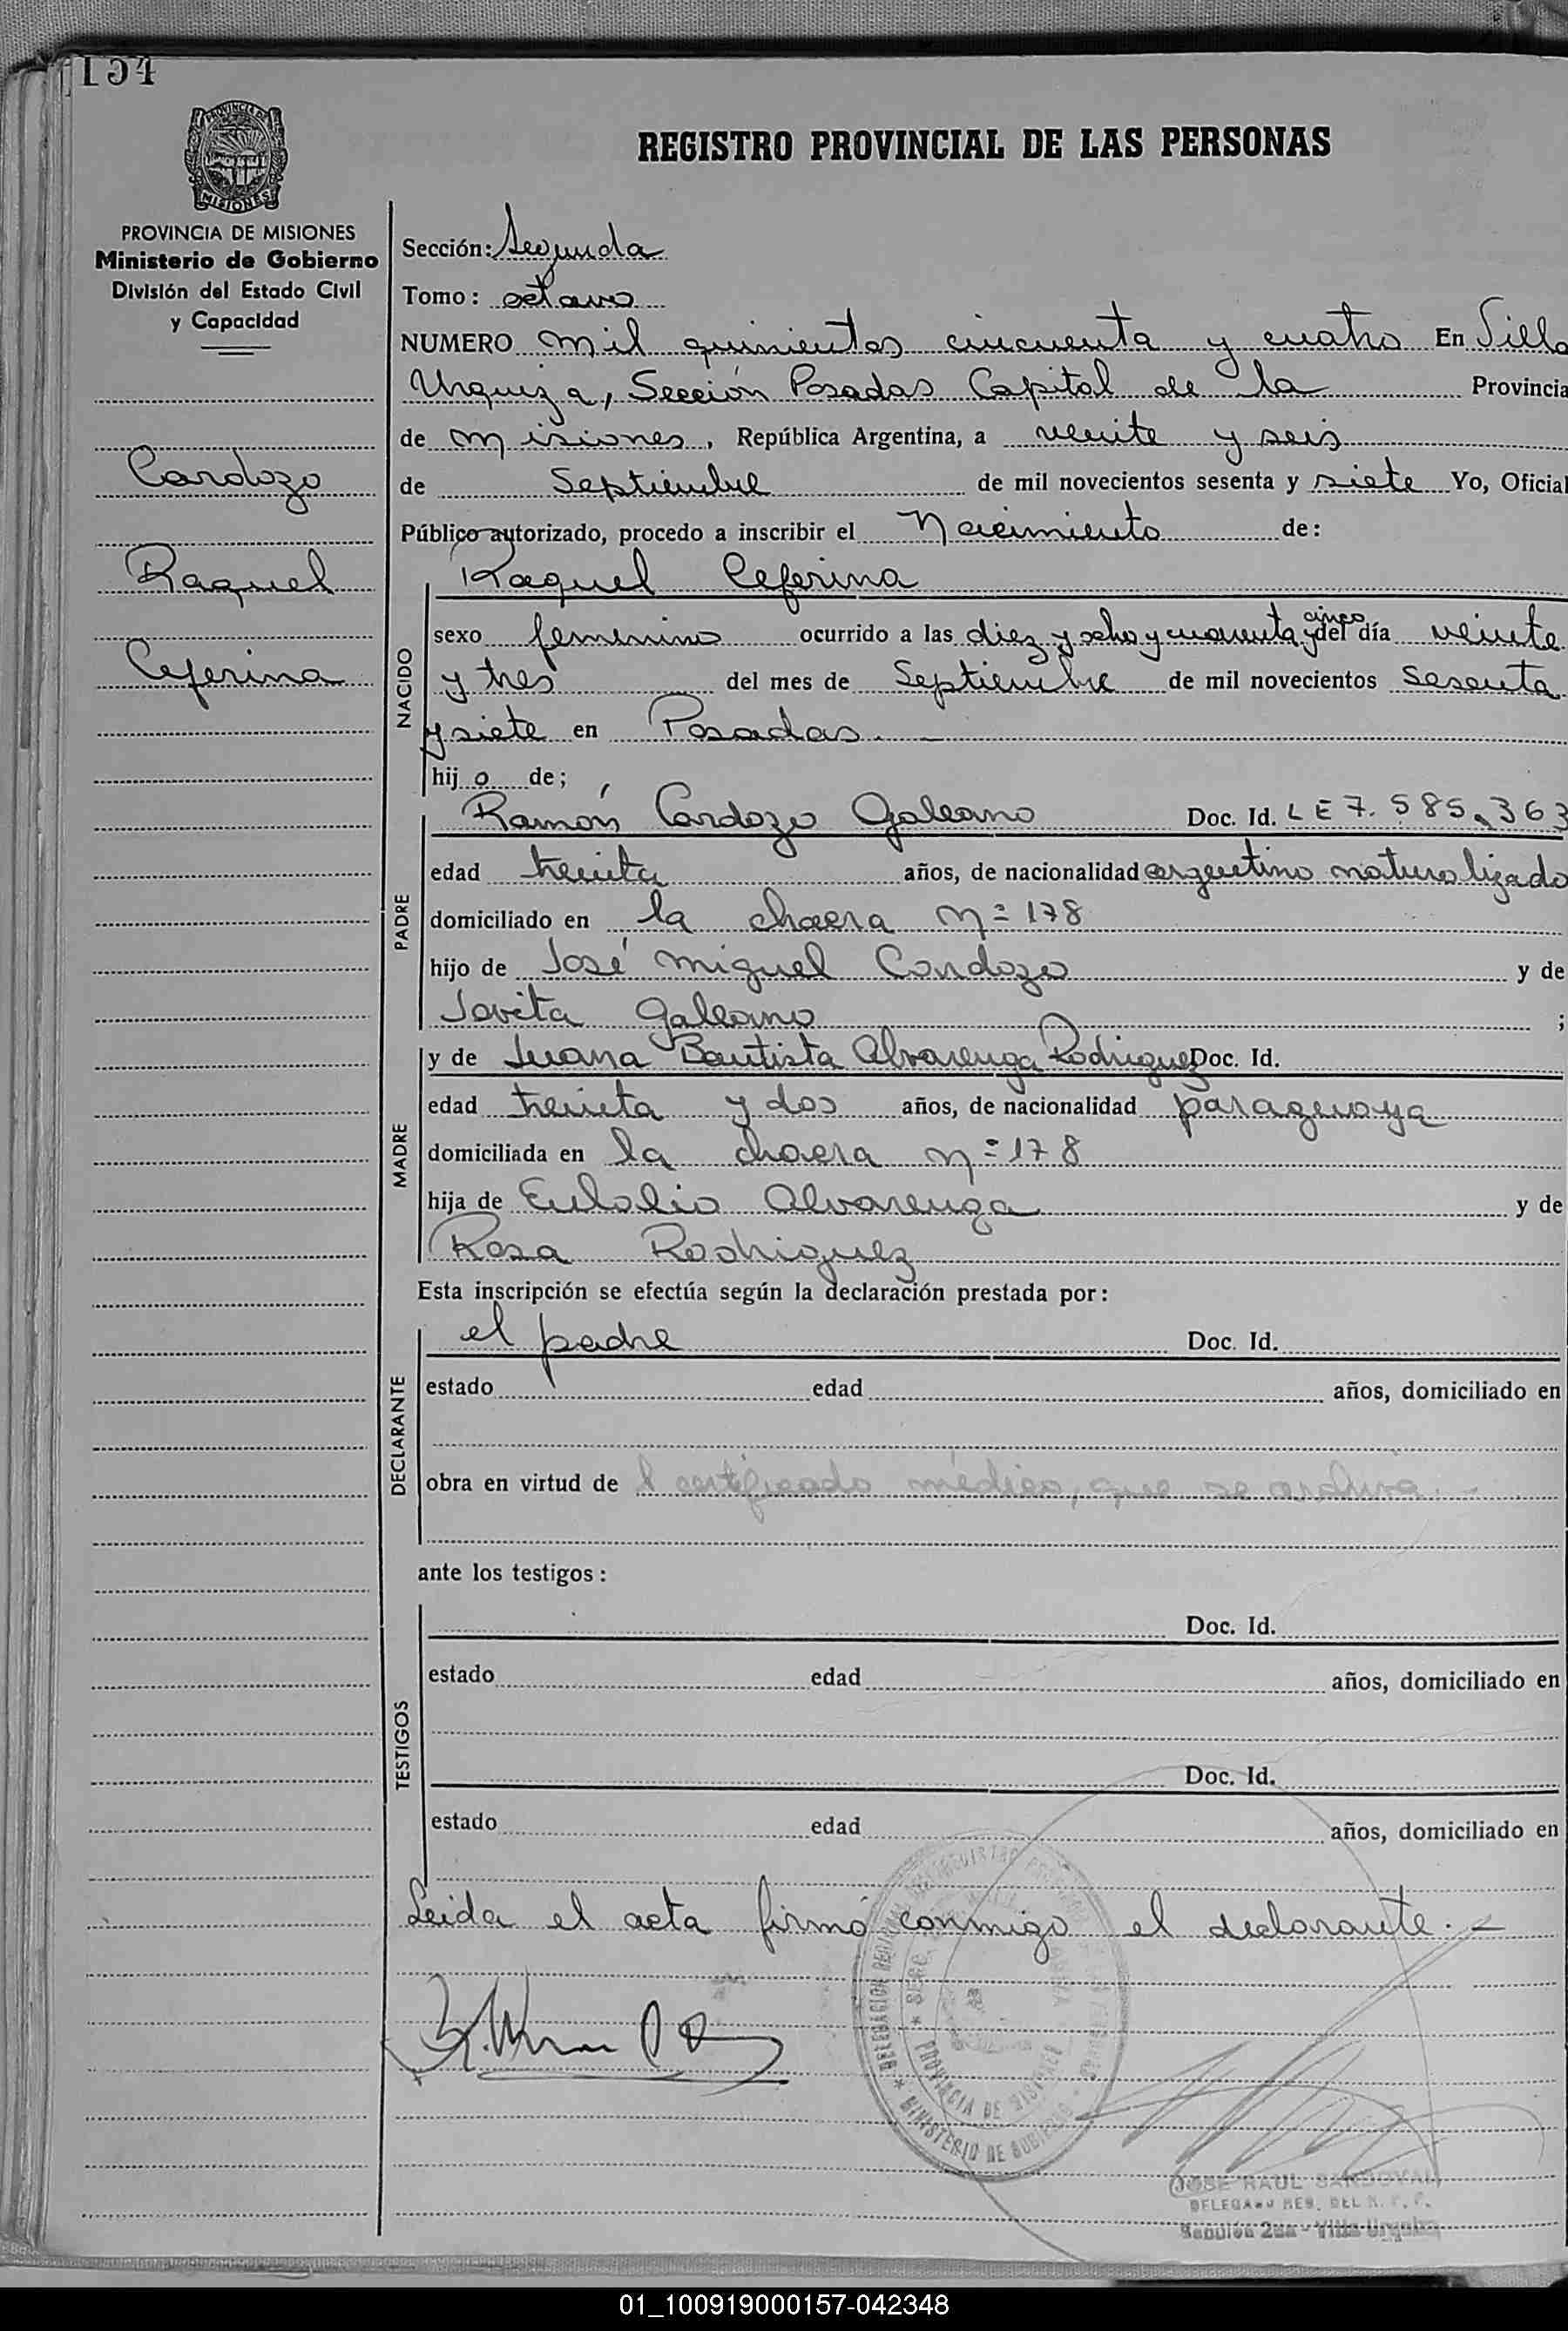 154
REGISTRO PROVINCIAL DE LAS PERSONAS
PROVINCIA DE MISIONES
MISIONES
PROVINCIA DE MISIONES
Ministerio de Gobierno
División del Estado Civil
y Capacidad
Cardozo
Raquel
Ceferina
Sección: Segunda
Tomo: octavo
NUMERO mil quinientos cincuenta y cuatro En Villa
Urquiza, Sección Posadas Capital de la Provincia
de Misiones, República Argentina, a veinte y seis
de Septiembre de mil novecientos sesenta y siete Yo, Oficial
Público autorizado, procedo a inscribir el Nacimiento de:
Raquel Ceferina
NACIDO
sexo femenino ocurrido a las diez y ocho y cuarenta y cinco del día veinte
y tres del mes de Septiembre de mil novecientos sesenta
y siete en Posadas. —
hijo de;
PADRE
Ramón Cardozo Galeano Doc. Id. LE 7.585.363
edad treinta años, de nacionalidad argentino naturalizado
domiciliado en la chacra n= 178
hijo de José Miguel Cardozo y de
Jovita Galeano ;
MADRE
y de Juana Bautista Alvarenga Rodriguez Doc. Id.
edad treinta y dos años, de nacionalidad paraguaya
domiciliada en la chacra n= 178
hija de Eulalio Alvarenga y de
Rosa Rodriguez
Esta inscripción se efectúa según la declaración prestada por:
DECLARANTE
el padre Doc. Id.
estado edad años, domiciliado en
obra en virtud de l certificado médico, que se archiva. -
ante los testigos:
TESTIGOS
Doc. Id.
estado edad años, domiciliado en
Doc. Id.
estado edad años, domiciliado en
Leida el acta firmó conmigo el declarante. —
PROVINCIA DE MISIONES
MINISTERIO DE GOBIERNO
JOSE RAUL SANDOVAL
DELEGADO REG. DEL R. P. P.
Sección 2da - Villa Urquiza
01_100919000157-042348